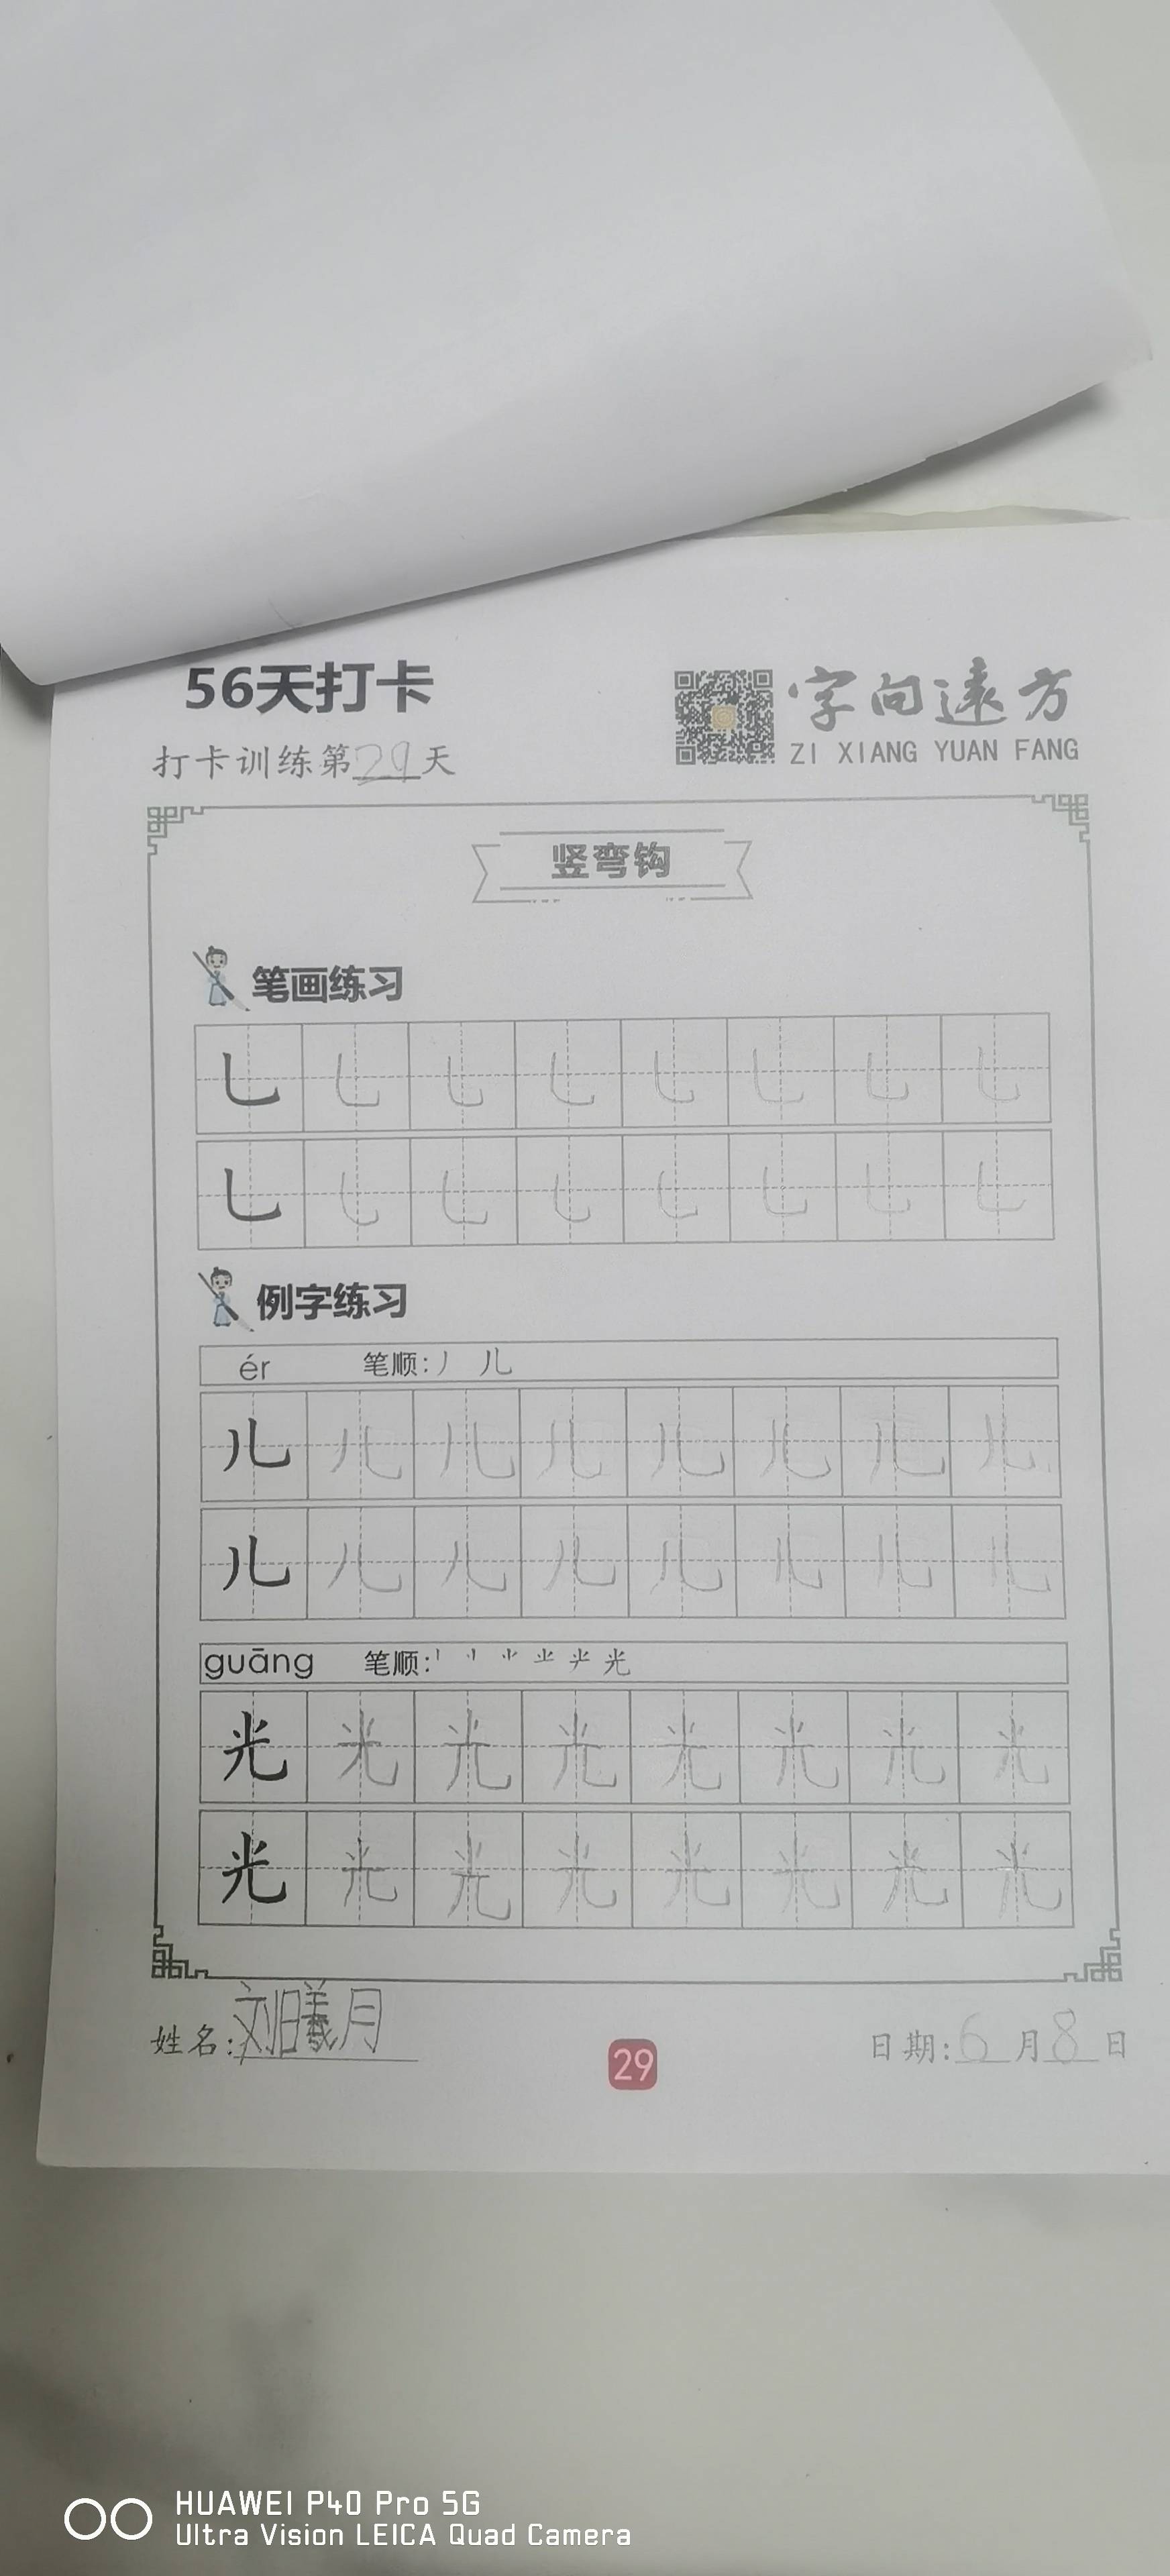 56天打卡
打卡训练第29天
字向远方
ZI XIANG YUAN FANG
竖弯钩
笔画练习
乚 乚 乚 乚 乚 乚 乚 乚
乚 乚 乚 乚 乚 乚 乚 乚
例字练习
ér 笔顺:丿 儿
儿 儿 儿 儿 儿 儿 儿 儿
儿 儿 儿 儿 儿 儿 儿 儿
guāng 笔顺: 光
光 光 光 光 光 光 光 光
光 光 光 光 光 光 光 光
姓名:刘曦月
29
日期:6月8日
HUAWEI P40 Pro 5G
Ultra Vision LEICA Quad Camera